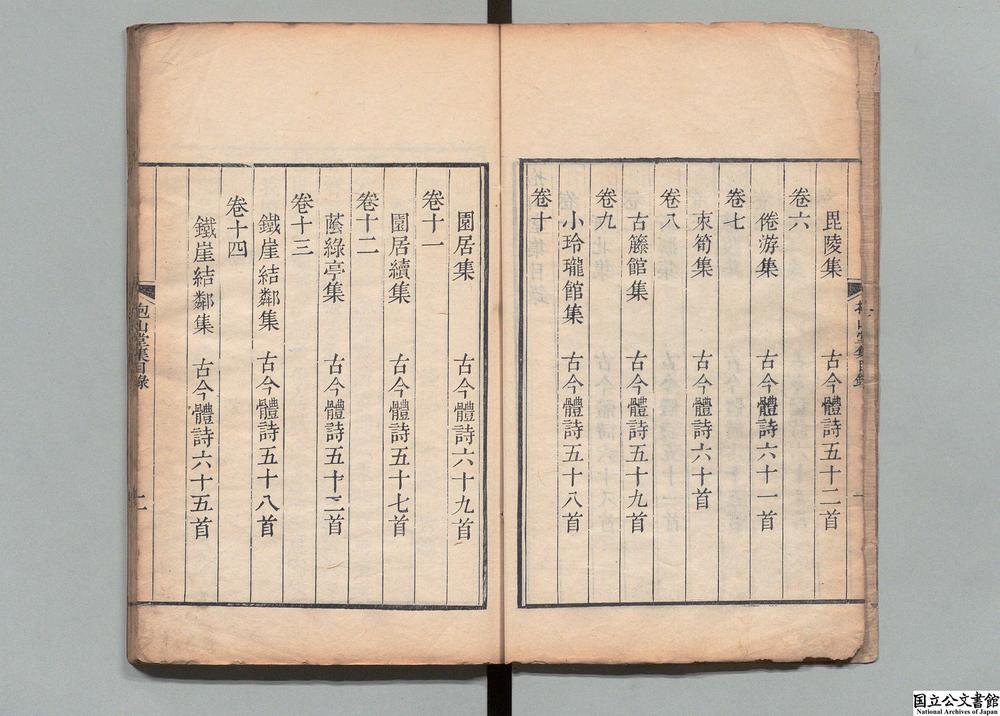 毘陵集　古今體詩五十二首
卷六
倦游集　古今體詩六十一首
卷七
束筍集　古今體詩六十首
卷八
古籐館集　古今體詩五十九首
卷九
小玲瓏館集　古今體詩五十八首
卷十
園居集　古今體詩六十九首
卷十一
園居續集　古今體詩五十七首
卷十二
蔭綠亭集　古今體詩五十二首
卷十三
鐵崖結鄰集　古今體詩五十八首
卷十四
鐵崖結鄰集　古今體詩六十五首
抱山堂集目錄
国立公文書館
National Archives of Japan